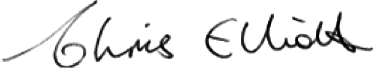 Chris Elliott